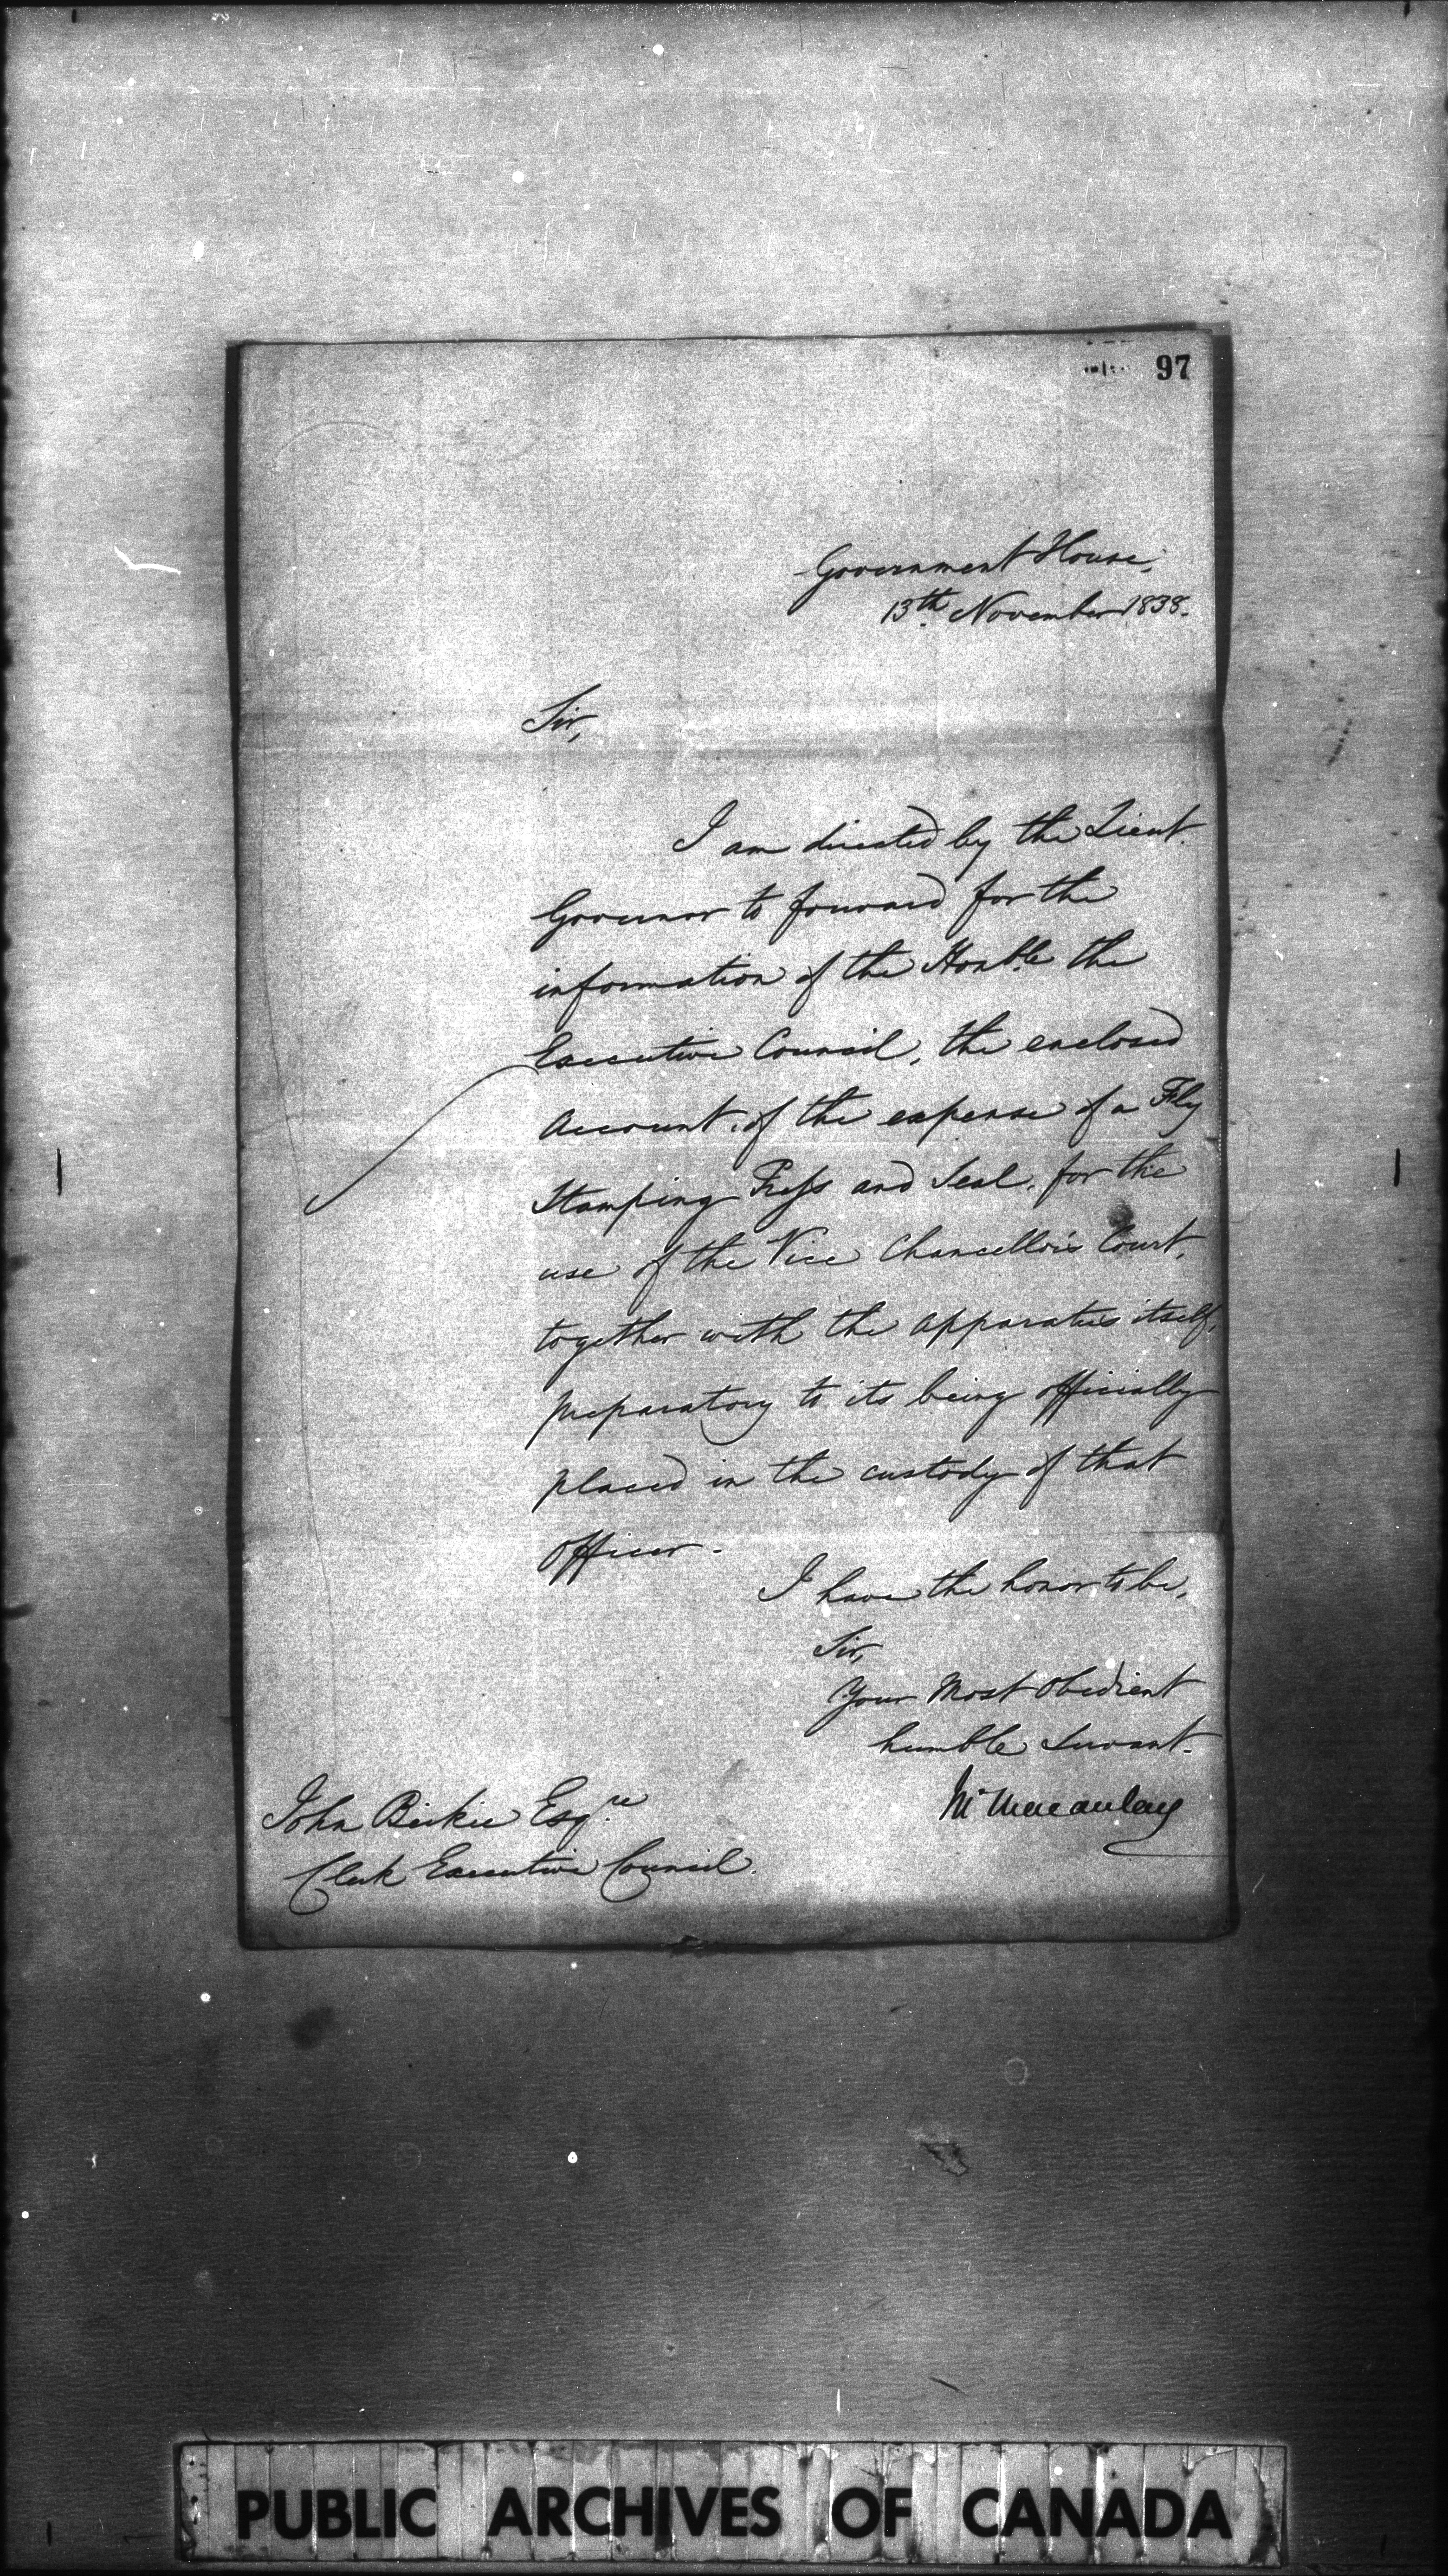 97
Government House,
13th November 1838.
Sir,
I am directed by the Lieut.
Governor to forward for the
information of the Honble the
Executive Council, the enclosed
Account of the expense of a Fly
Stamping Press and Seal, for the
use of the Vice Chancellor's Court,
together with the apparatus itself,
preparatory to its being officially
placed in the custody of that
Officer.
I have the honor to be,
Sir,
Your Most Obedient
humble Servant.
Macaulay
John Beikie Esqre
Clerk Executive Council.
PUBLIC ARCHIVES OF CANADA